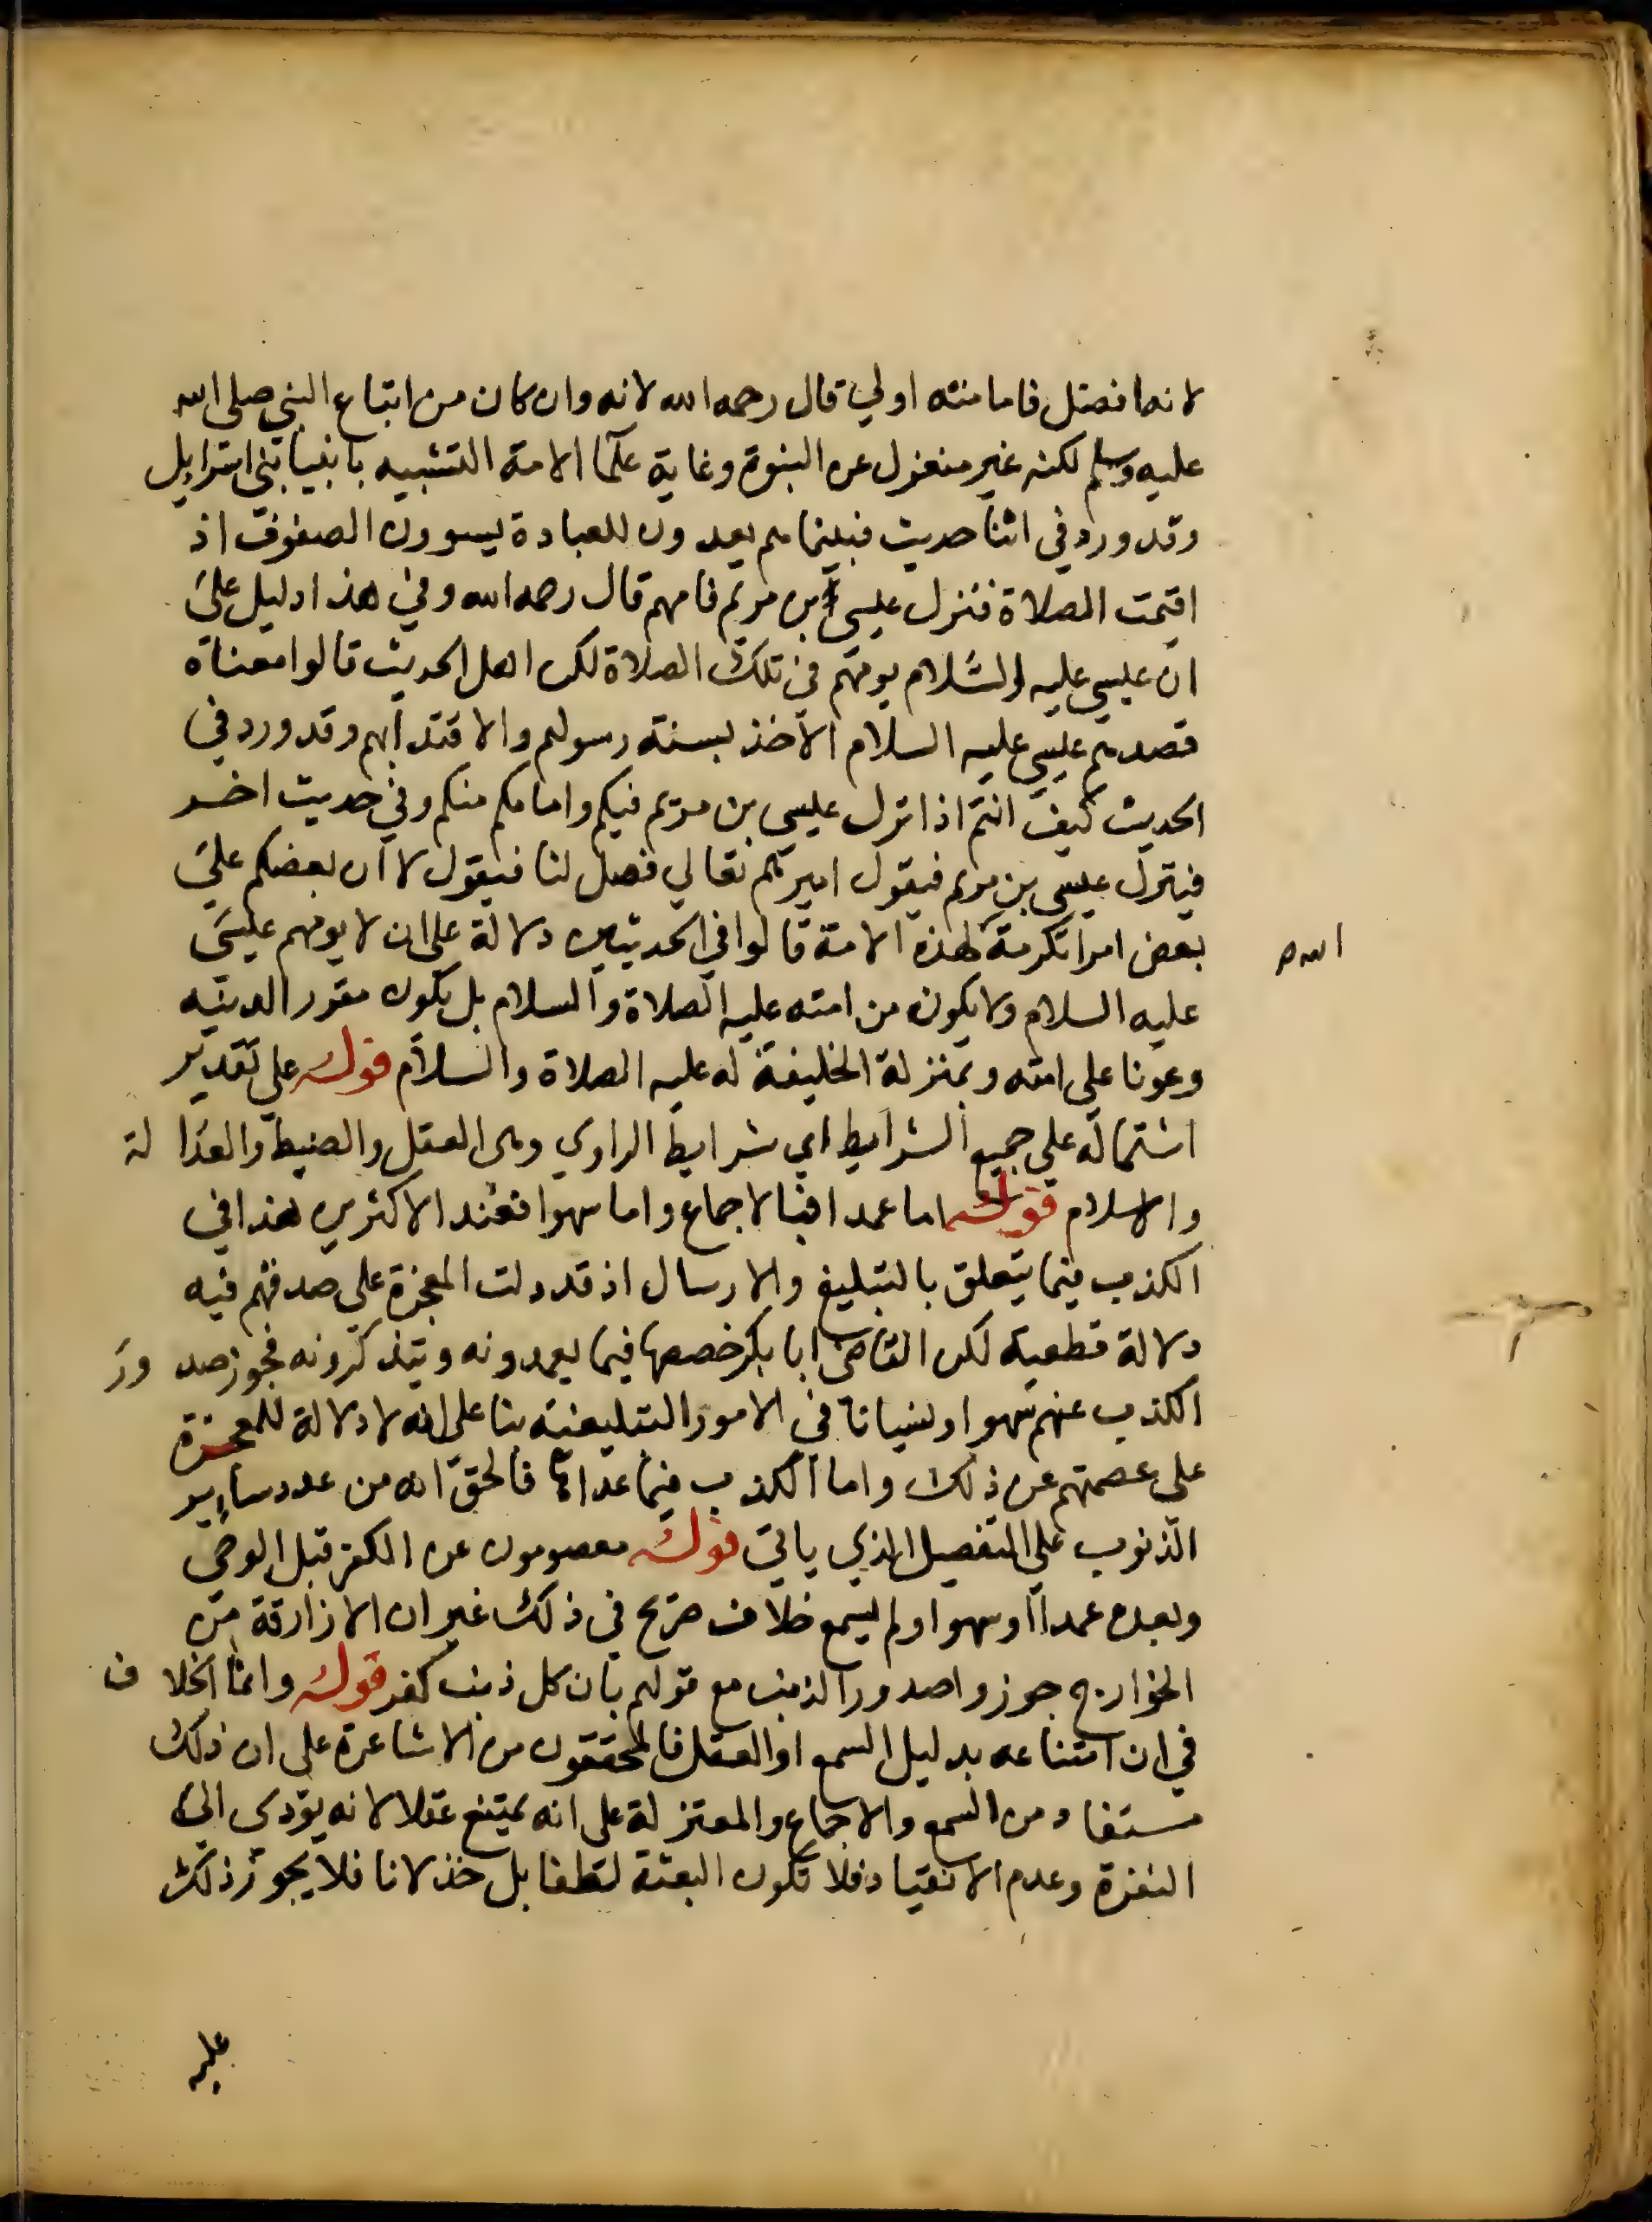 لانه افضل فامامته اولي قال رحمه الله لانه وان كان من اتباع النبي صلى الله
عليه وسلم لكنه غير منعزل عن النبوة وغاية علما الامة التشبيه بانبيا بني اسرايل
وقد ورد في اثنا حديث فبينما هم يعدون للعبادة يسوون الصفوف اذ
اقيمت الصلاة فنزل عيسى بن مريم فامهم قال رحمه الله وفي هذا دليل على
ان عيسى عليه السلام يومهم في تلك الصلاة لكن اهل الحديث قالوا معناه
قصدهم عيسى عليه السلام الاخذ بسنة رسولهم والاقتدا بهم وقد ورد في
الحديث كيف انتم اذا نزل عيسى بن مريم فيكم وامامكم منكم وفي حديث اخر
فينزل عيسى بن مريم فيقول اميرهم تعالي فصل لنا فيقول لا ان بعضكم علي
بعض امرا تكرمة لهذه الامة قالوا في الحديثين دلالة على ان لا يومهم عيسى
الله
عليه السلام ولا يكون من امته عليه الصلاة والسلام بل يكون مقررا لدينه
وعونا على امته وبمنزلة الخليفة له عليه الصلاة والسلام قوله على تقدير
اشتماله علي جميع الشرايط اي شرايط الراوي وهى العقل والضبط والعدالة
والاسلام قوله اما عمدا فبالاجماع واما سهوا فعند الاكثرين هذا في
الكذب فيما يتعلق بالتبليغ والارسال اذ قد دلت المعجزة علي صدقهم فيه
دلالة قطعية لكن القاضي ابا بكر خصصها فيما يعمدونه ويتذكرونه فجوز صدور
الكذب عنهم سهوا ونسيانا في الامور التبليغية بنا على انه لا دلالة للمعجزة
على عصمتهم عن ذلك واما الكذب فيما عداها فالحق انه من عدد ساير
الذنوب علي التفصيل الذي ياتي قوله معصومون عن الكفر قبل الوحي
وبعده عمدا او سهوا ولم يسمع خلاف صريح في ذلك غير ان الازارقة من
الخوارج جوزوا صدور الذنب مع قولهم بان كل ذنب كفر قوله وانما الخلاف
في ان امتناعه بدليل السمع او العقل فالمحققون من الاشاعرة على ان ذلك
مستفاد من السمع والاجماع والمعتزلة على انه يمتنع عقلا لانه يؤدى الي
النفرة وعدم الانقياد فلا تكون البعثة لطفا بل خذلانا فلا يجوز ذلك
عليه